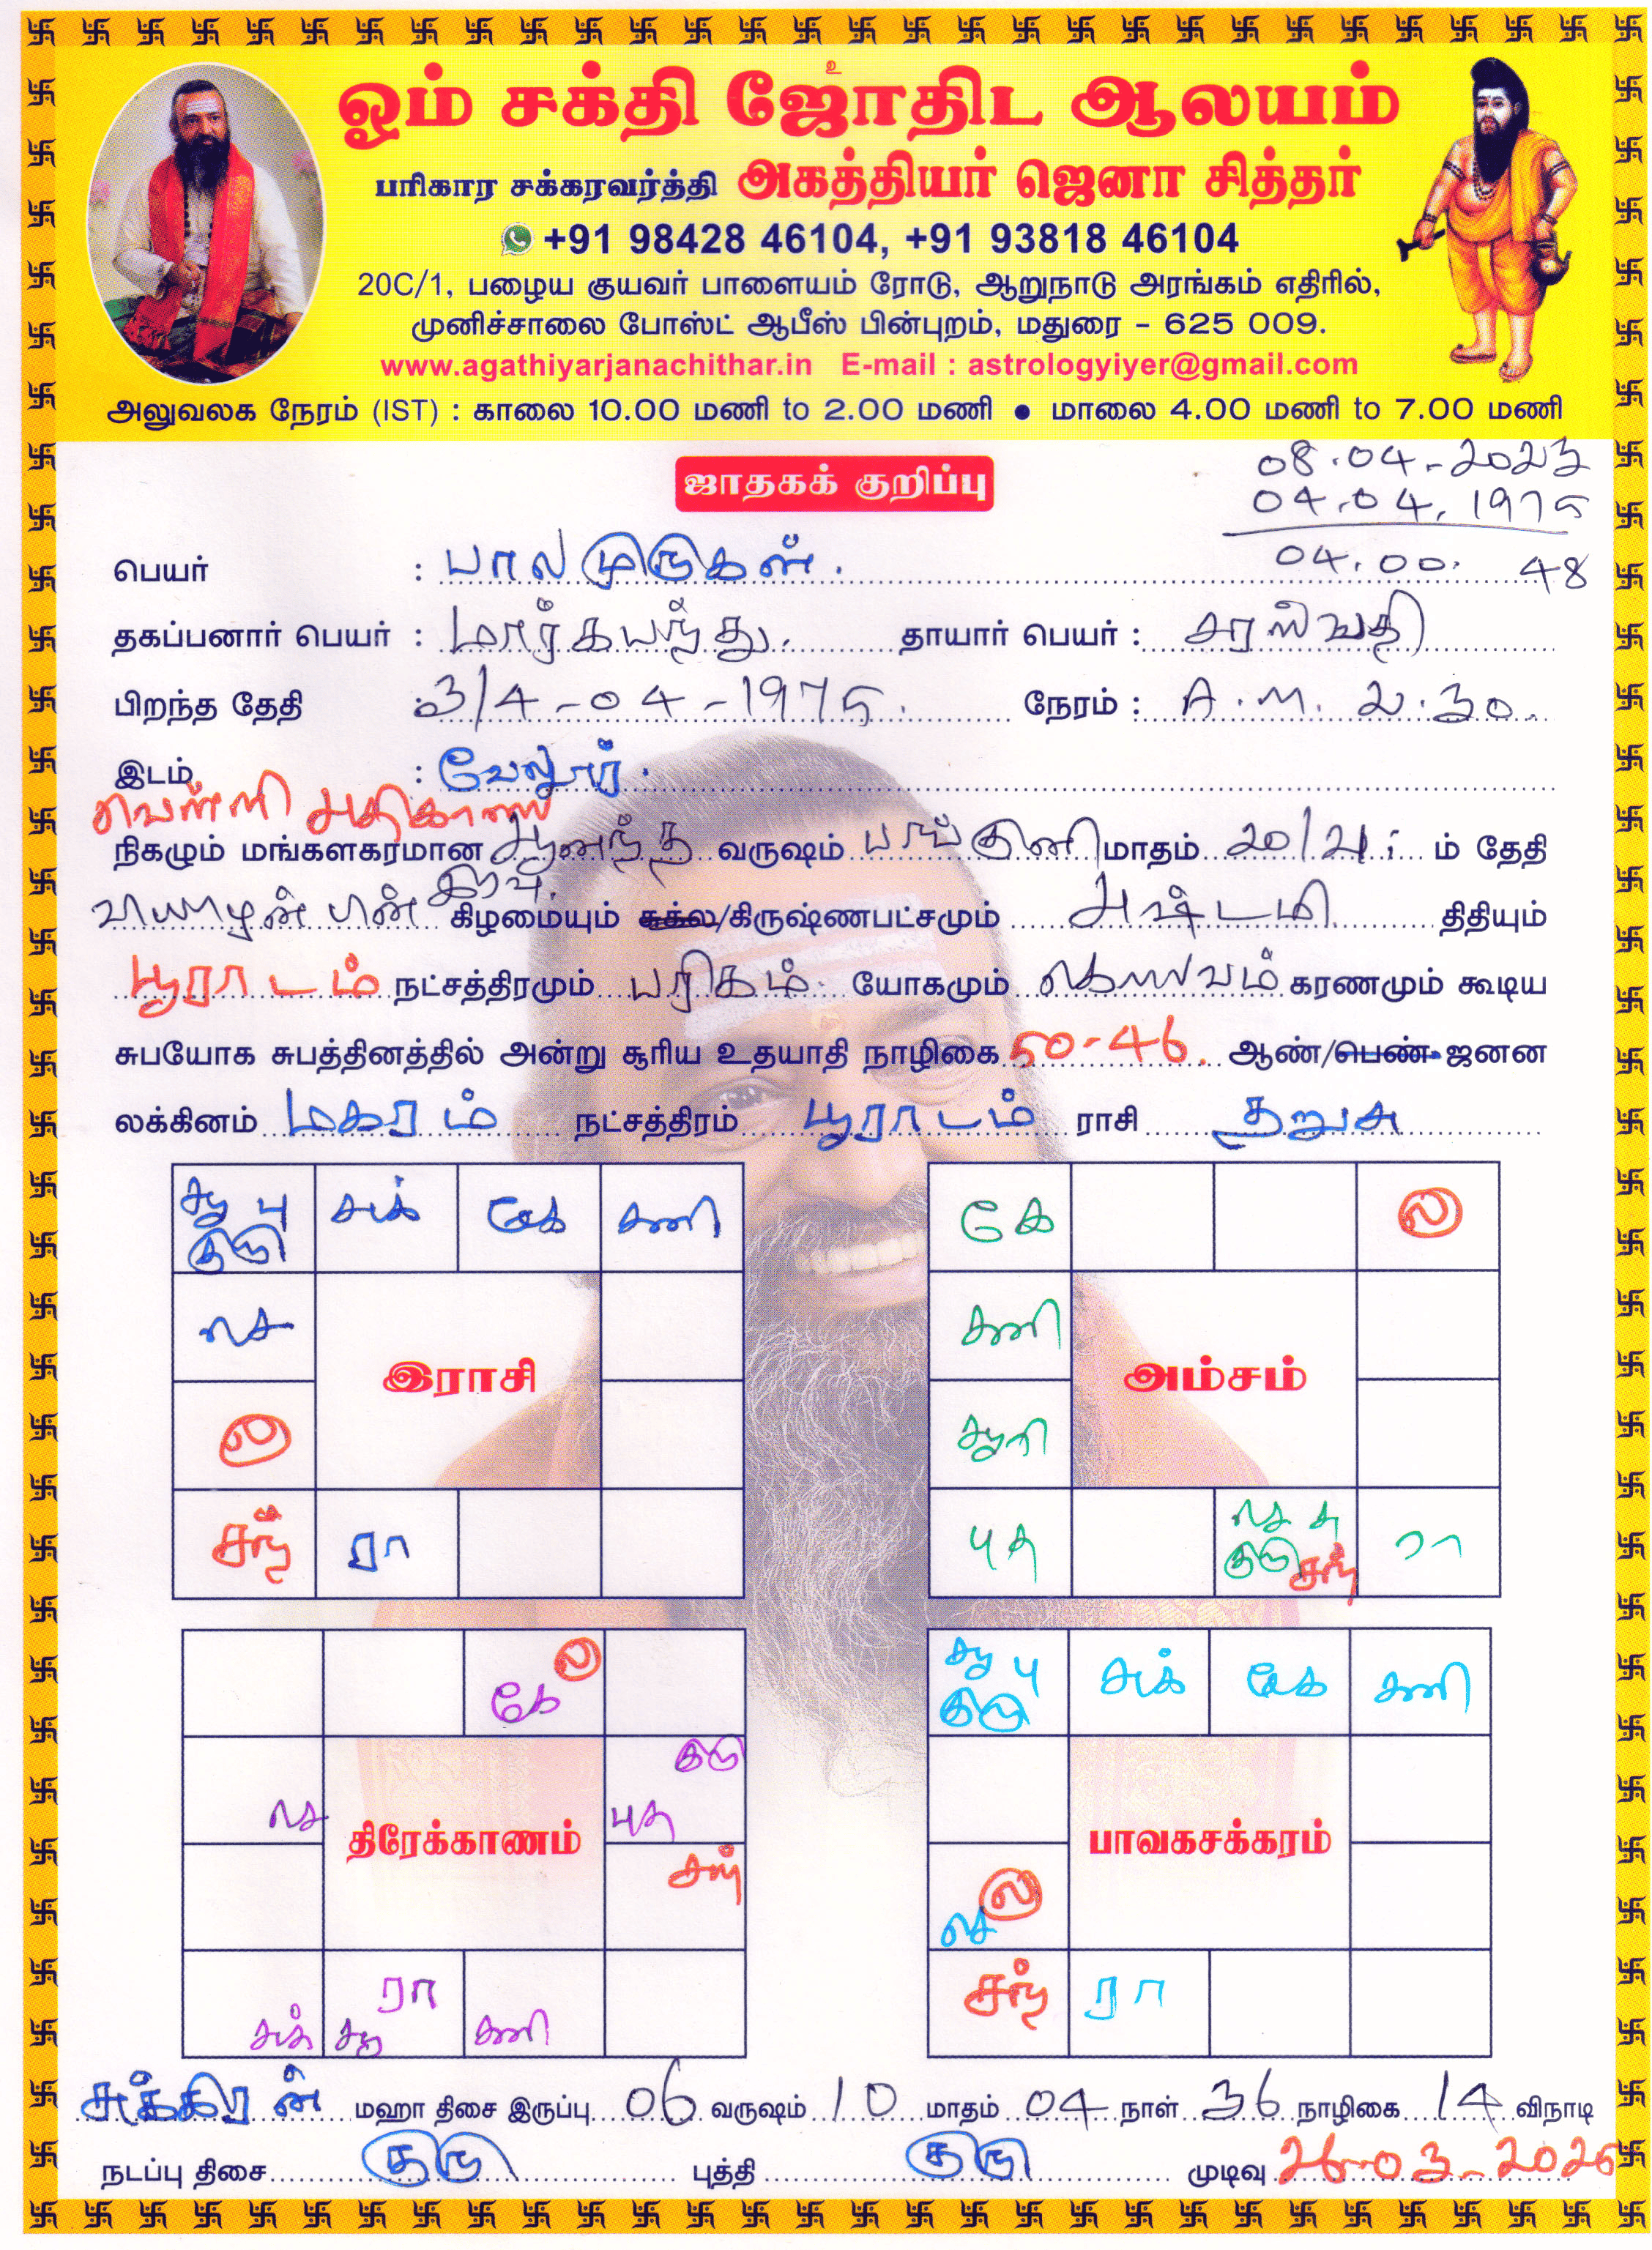 உ
ஓம் சக்தி ஜோதிட ஆலயம்
பரிகார சக்கரவர்த்தி அகத்தியர் ஜெனா சித்தர்
+91 98428 46104, +91 93818 46104
20C/1, பழைய குயவர் பாளையம் ரோடு, ஆறுநாடு அரங்கம் எதிரில்,
முனிச்சாலை போஸ்ட் ஆபீஸ் பின்புறம், மதுரை - 625 009.
www.agathiyarjanachithar.in E-mail : astrologyiyer@gmail.com
அலுவலக நேரம் (IST) : காலை 10.00 மணி to 2.00 மணி ● மாலை 4.00 மணி to 7.00 மணி
08.04.-2023
ஜாதகக் குறிப்பு
04.04.1975
04.00. 48
பெயர் : பாலமுருகன்.
தகப்பனார் பெயர் : மார்கபந்து. தாயார் பெயர் : சரஸ்வதி
பிறந்த தேதி : 3/4-04-1975. நேரம் : A.M. 2.30.
இடம் : வேலூர்.
வெள்ளி அதிகாலை
நிகழும் மங்களகரமான ஆனந்த வருஷம் பங்குனி மாதம் 20/21 ம் தேதி
வியாழன் பின் இரவு கிழமையும் சுக்ல/கிருஷ்ணபட்சமும் அஷ்டமி திதியும்
பூராடம் நட்சத்திரமும் பரிகம் யோகமும் கௌலவம் கரணமும் கூடிய
சுபயோக சுபத்தினத்தில் அன்று சூரிய உதயாதி நாழிகை 50-46. ஆண்/பெண் ஜனன
லக்கினம் மகரம் நட்சத்திரம் பூராடம் ராசி தனுசு
சூ பு சுக் கே சனி
குரு
செ
இராசி
ல
சந் ரா
கே ல
சனி
அம்சம்
சூரி
புத செ சு குரு சந் ரா
கே ல
குரு
செ திரேக்காணம் புத
சந்
சுக் சூ ரா சனி
சூ பு சுக் கே சனி
குரு
பாவகசக்கரம்
செ ல
சந் ரா
சுக்கிரன் மஹா திசை இருப்பு 06 வருஷம் 10 மாதம் 04 நாள் 36 நாழிகை 14 விநாடி
நடப்பு திசை குரு புத்தி குரு முடிவு 26-03-2026